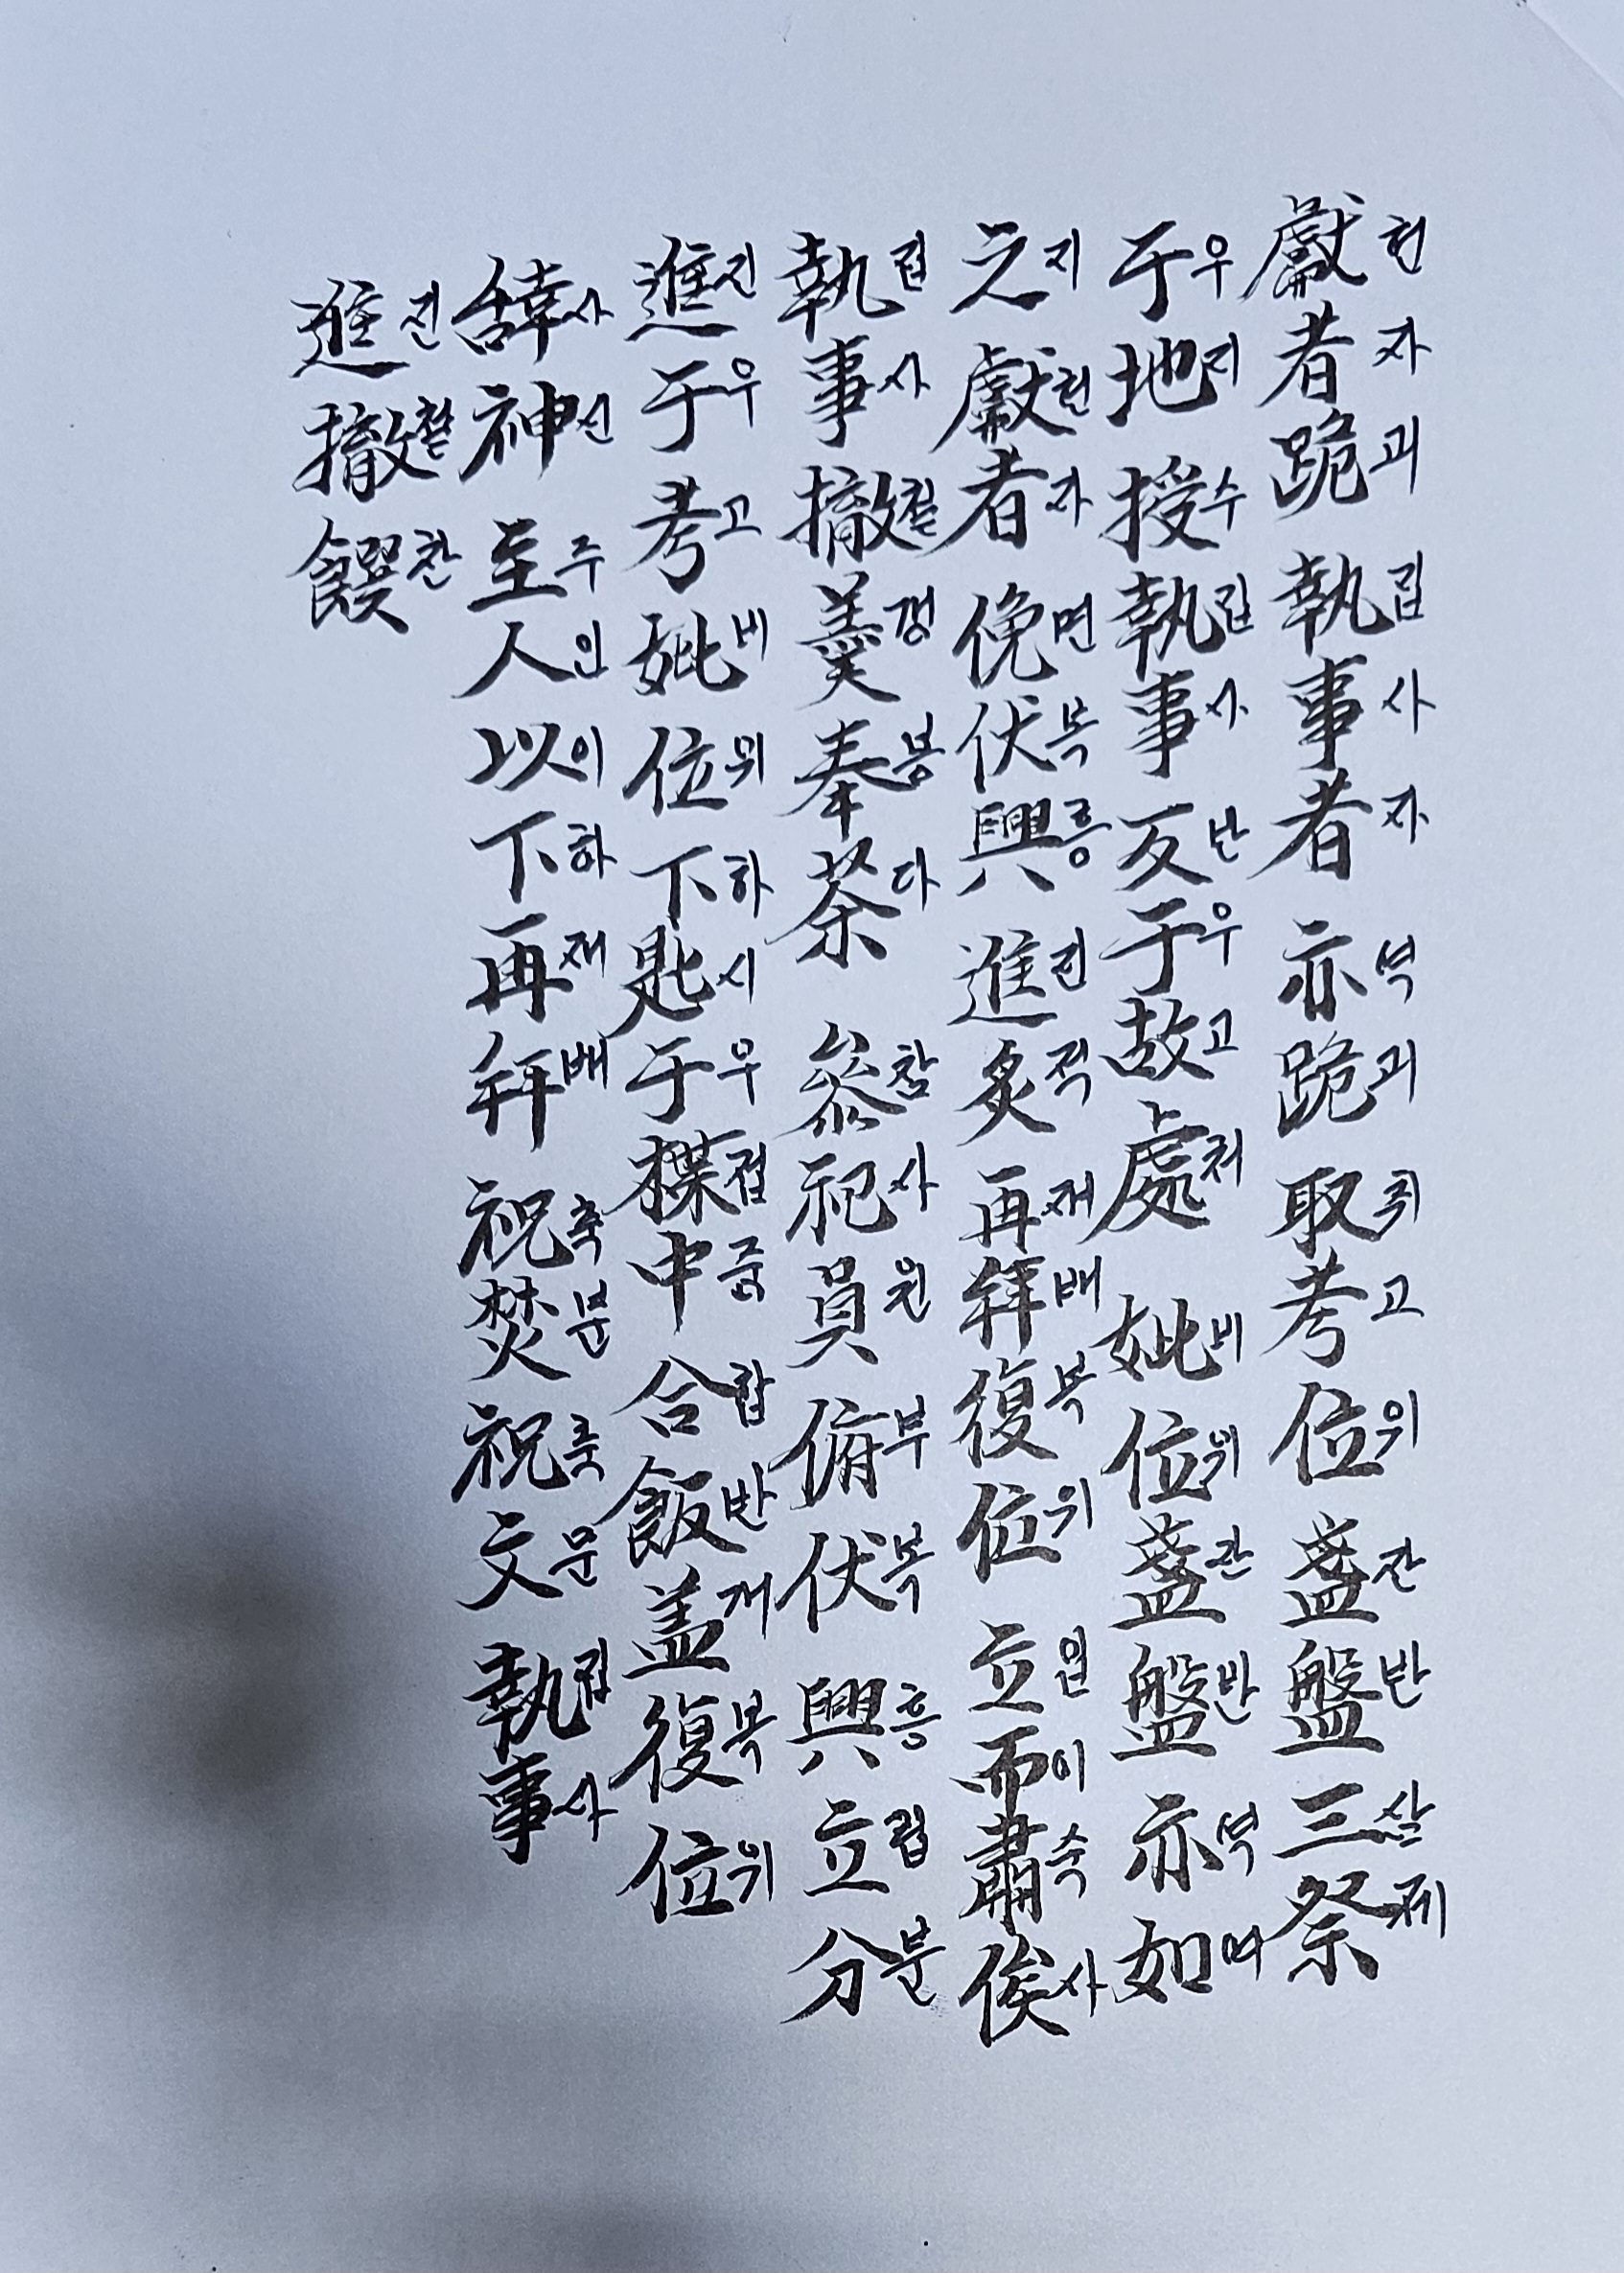 獻헌者자跪궤執집事사者자亦역跪궤取취考고位위盞잔盤반三삼祭제
于우地지授수執집事사反반于우故고處처妣비位위盞잔盤반亦역如여
之지獻헌者자俛면伏복興흥進진炙적再재拜배復복位위立입而이肅숙俟사
執집事사撤철羹갱奉봉茶다參참祀사員원俯부伏복興흥立립分분
進진于우考고妣비位위下하匙시于우楪접中중合합飯반盖개復복位위
辞사神신主주人인以이下하再재拜배祝축焚분祝축文문執집事사
進진撤철饌찬